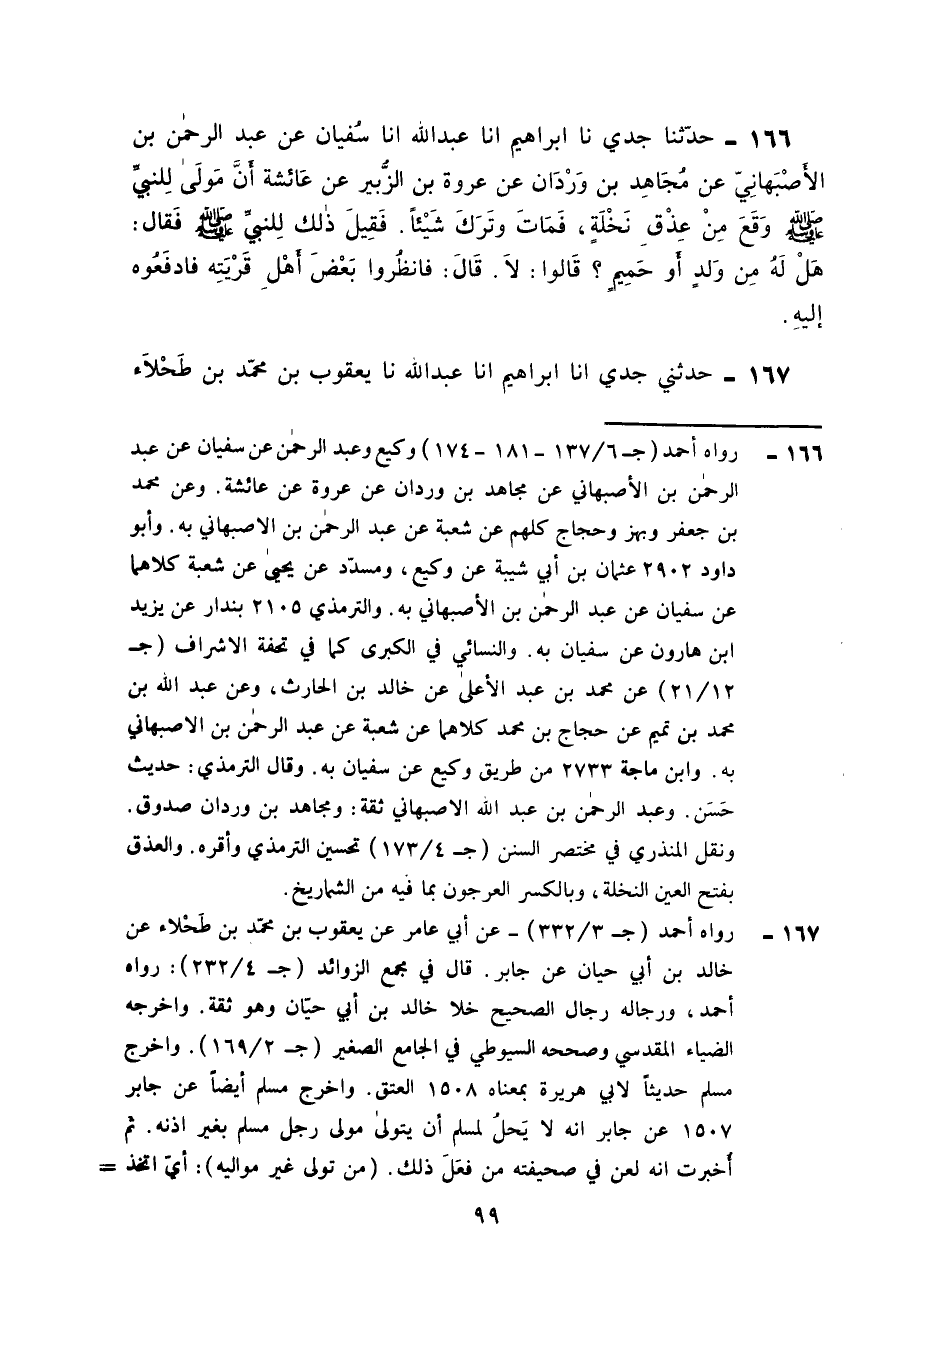 ١٦٦ ـ حدّثنا جدي نا ابراهيم انا عبدالله انا سُفيان عن عبد الرحمٰن بن
الأَصْبَهانِيّ عن مُجَاهِد بن وَرْدَان عن عروة بن الزُّبير عن عَائشة أَنَّ مَولَىٰ لِلنبيِّ
ﷺ وَقَعَ مِنْ عِذْقِ نَخْلَةٍ، فَمَاتَ وتَرَكَ شَيْئاً. فَقِيلَ ذٰلك لِلنبيِّ ﷺ فَقال:
هَلْ لَهُ مِن وَلدٍ أو حَمِيمٍ؟ قَالوا: لاَ. قَالَ: فانظُروا بَعْضَ أَهْلِ قَرْيَتِه فادفَعُوه
إليهِ.
١٦٧ ـ حدثني جدي انا ابراهيم انا عبدالله نا يعقوب بن محمّد بن طَحْلاَء
١٦٦ ـ رواه أحمد (جـ ١٣٧/٦ - ١٨١ - ١٧٤) وكيع وعبد الرحمٰن عن سفيان عن عبد
الرحمٰن بن الأصبهاني عن مجاهد بن وردان عن عروة عن عائشة. وعن محمد
بن جعفر وبهز وحجاج كلهم عن شعبة عن عبد الرحمٰن بن الاصبهاني به. وأبو
داود ٢٩٠٢ عثمان بن أبي شيبة عن وكيع، ومسدّد عن يحيىٰ عن شعبة كلاهما
عن سفيان عن عبد الرحمٰن بن الأصبهاني به. والترمذي ٢١٠٥ بندار عن يزيد
ابن هارون عن سفيان به. والنسائي في الكبرى كما في تحفة الاشراف (جـ
٢١/١٢) عن محمد بن عبد الأعلىٰ عن خالد بن الحارث، وعن عبد الله بن
محمد بن تميم عن حجاج بن محمد كلاهما عن شعبة عن عبد الرحمٰن بن الاصبهاني
به. وابن ماجة ٢٧٣٣ من طريق وكيع عن سفيان به. وقال الترمذي: حديث
حَسَن. وعبد الرحمٰن بن عبد الله الاصبهاني ثقة: ومجاهد بن وردان صدوق.
ونقل المنذري في مختصر السنن (جـ ١٧٣/٤) تحسين الترمذي وأقره. والعذق
بفتح العين النخلة، وبالكسر العرجون بما فيه من الشماريخ.
١٦٧ ـ رواه أحمد (جـ ٣٣٢/٣) - عن أبي عامر عن يعقوب بن محمّد بن طَحْلاء عن
خالد بن أبي حيان عن جابر. قال في مجمع الزوائد (جـ ٢٣٢/٤): رواه
أحمد، ورجاله رجال الصحيح خلا خالد بن أبي حيّان وهو ثقة. واخرجه
الضياء المقدسي وصححه السيوطي في الجامع الصغير (جـ ١٦٩/٢). واخرج
مسلم حديثاً لابي هريرة بمعناه ١٥٠٨ العتق. واخرج مسلم أيضاً عن جابر
١٥٠٧ عن جابر انه لا يَحلُ لمسلم أن يتولىٰ مولى رجل مسلم بغير اذنه. ثم
أخبرت انه لعن في صحيفته من فعَلَ ذلك. (من تولى غير مواليه): أيّ اتخذ =
٩٩